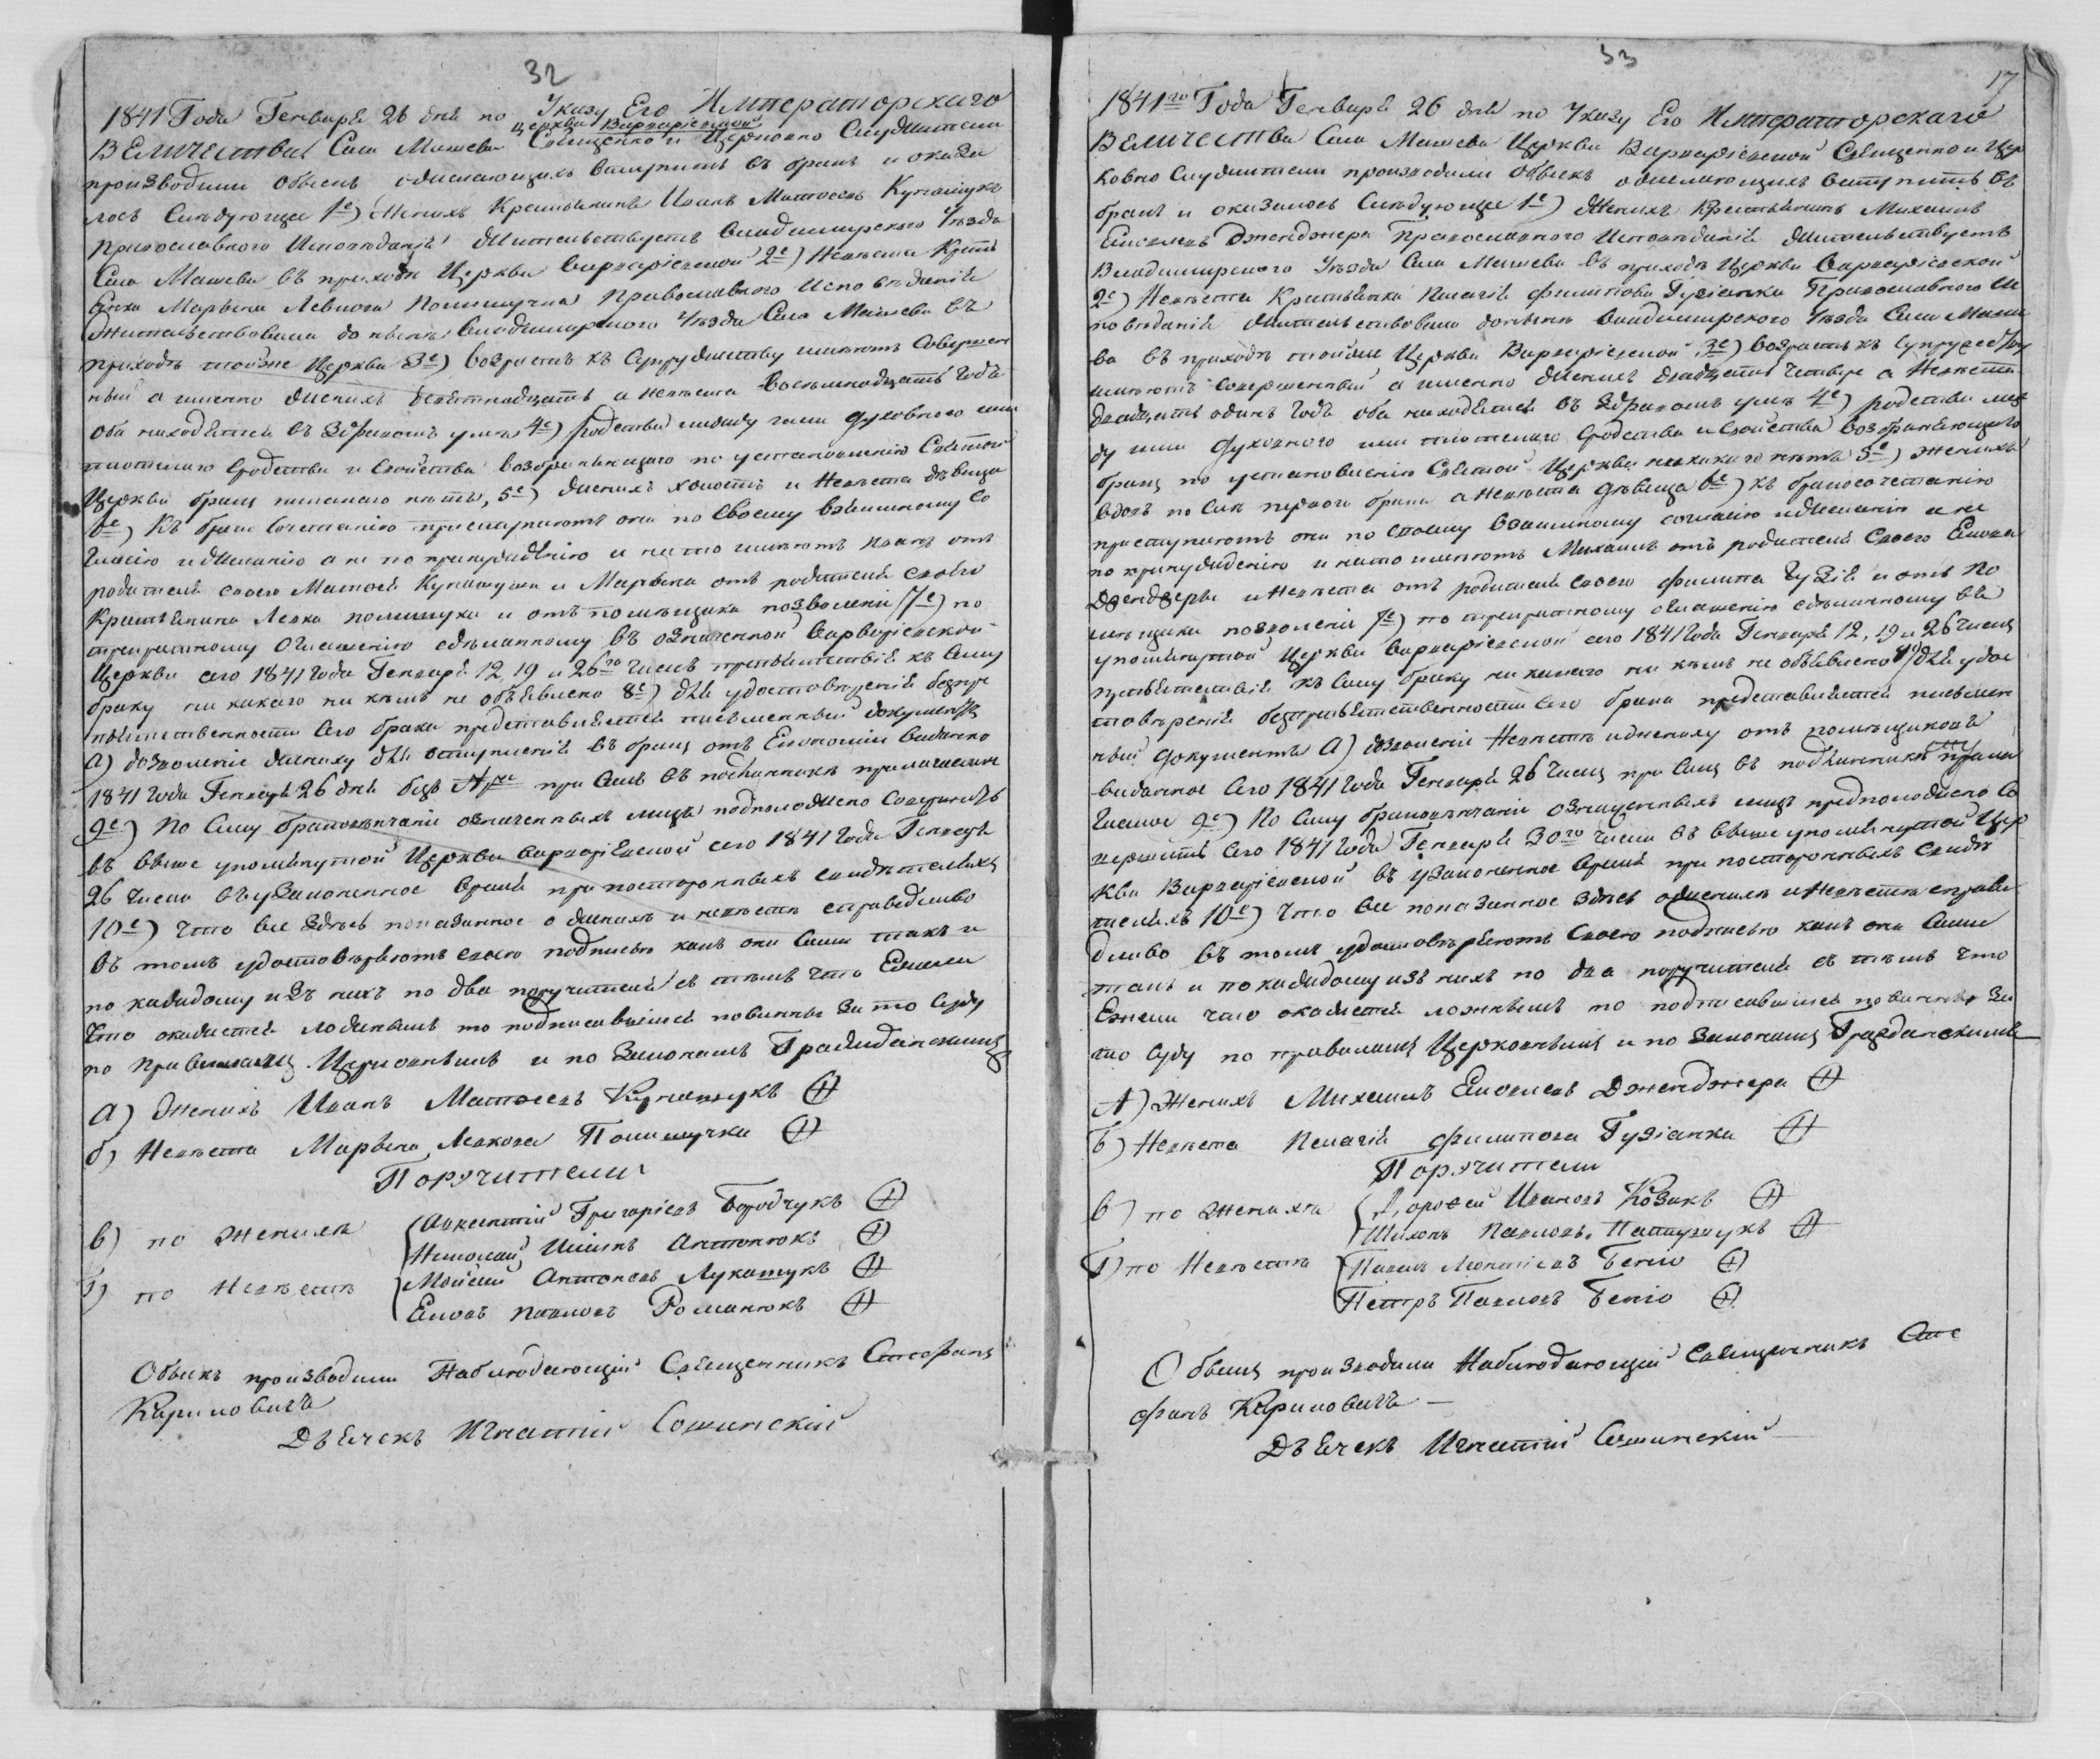 32
1841 Года Генваря 26 дня по Указу Его Императорскаго
церкви Варваріевской
Величества Села Машева Священно и Церковно Служители
производили обыскъ о желающихъ вступить въ бракъ и оказа
лось Слѣдующее 1е) Женихъ Крестьянинъ Иванъ Матөеевъ
Православного Исповѣданія Жительствуетъ Владимирского Уѣзда
Села Машева въ приходѣ Церкви Варваріевской 2е) Невѣста Крестя
енка Марьяна Левкова Полищучка Православного Исповѣданія
Жительствовала до нынѣ Владимирского Уѣзда Села Машева въ
приходѣ тойже Церкви 3е) возрастъ къ Супружеству имѣютъ Совершен
ный а именно женихъ девятнадцать а невѣста Восемнадцать годъ
оба находятся въ Здравомъ умѣ 4е) родства между ими духовного или
плотского Сродства и Свойства возбраняющаго по установленію Святой
Церкви бракъ никакаго нѣтъ, 5е) женихъ холостъ и Невѣста дѣвица
6е) Къ бракосочетанію приступаютъ они по Своему взаимному со
гласію и желанію а не по принужденію и на то имѣютъ Иванъ отъ
родителя своего Матөея и Марьяна отъ родителя своего
Крестьянина Левка полищука и отъ помѣщика позволеніе 7е) по
троекратному оглашенію сдѣланному въ означенной Варваріевской
Церкви сего 1841 года Генваря 12, 19 и 26го чиселъ препятствія къ Сему
браку ни какого ни кѣмъ не объявлено 8е) для удостовѣренія безпре
пятственности Сего брака представляется письменный документъ
а) дозволеніе жениху для вступленія въ бракъ отъ Економіи виданно
1841 года Генваря 26 дня безъ при семъ въ подлинникѣ прилагаемое
9е) По Сему браковѣнчаніе означенныхъ лицъ подположено Совершить
въ выше упомянутой Церкви Варваріевской сего 1841 года Генваря
26 числа въ узаконенное время при постороннихъ свидѣтеляхъ
10е) что все здѣсь показанное о женихѣ и невѣстѣ справедливо
въ томъ удостовѣряютъ своею подписью какъ они Сами такъ и
по каждому изъ нихъ по два поручителя съ тѣмъ что Ежели
что окажется ложнымъ то подписавшіеся повинны за то Суду
по правиламъ Церковнымъ и по Законамъ Гражданскимъ
а) Женихъ Иванъ Матөеевъ
б) Невѣста Марьяна Левкова Полищучка
Поручители
в) по Женихѣ Авксентій Григоріевъ Бородчукъ
Николай Антонюкъ
г) по Невѣстѣ Мойсей Антоновъ Лукашукъ
Павловъ Романюкъ
Обыскъ производили Наблюдающій Священникъ Стефанъ
Кариловичъ
Дьячекъ Игнатій Сошинскій
33
17
1841го Года Генваря 26 дня по Указу Его Императорскаго
Величества Села Машева Церкви Варваріевской Священно и Цер
ковно Служители производили Обыскъ о желающихъ вступить въ
бракъ и оказалось Слѣдующее 1е) Женихъ Крестьянинъ Михаилъ
Дженджера Православного Исповѣданія Жительствуетъ
Владимирского Уѣзда Села Машева въ приходѣ Церкви Варваріевской
2е) Невѣста Крестьянка Пелагія Филипова Гузіанка Православного Ис
повѣданія Жительствовала донынѣ Владимирского Уѣзда Села Маше
ва въ приходѣ тойже Церкви Варваріевской 3е) возрастъ къ Супружеству
имѣютъ Совершенный а именно женихъ двадцать четыре а Невѣста
двадцать одинъ годъ оба находятся въ Здравомъ умѣ 4е) родства меж
ду ими духовного или плотского Сродства и Свойства возбраняющаго
бракъ по установленію Святой Церкви никакаго нѣтъ 5е) женихъ
вдовъ первого брака а Невѣста дѣвица 6е) къ бракосочетанію
приступаютъ они по своему взаимному согласію и желанію а не
по принужденію и на то имѣютъ Михаилъ отъ родителя своего
Дженджеры и Невѣста отъ родителя своего Филипа Гузія и отъ По
мѣщика позволеніе 7е) по троекратному оглашенію сдѣланному въ
упомянутой Церкви Варваріевской сего 1841 года Генваря 12, 19 и 26 чиселъ
препятствія къ Сему браку ни какого ни кѣмъ не объявлено 8е) для удос
товѣренія безпрепятственности Сего брака представляется письмен
ный документъ а) дозволеніе Невѣстѣ и жениху отъ помѣщиковъ
виданное Сего 1841 года Генваря 26 числа при Семъ въ подлинникѣ прила
гаемое 9е) По Сему браковѣнчаніе означенныхъ лицъ предположено Со
вершить Сего 1841 года Генваря 30го числа въ выше упомянутой Цер
кви Варваріевской въ узаконенное время при постороннихъ Свидѣ
теляхъ 10е) что все показанное здѣсь о женихѣ и Невѣстѣ справе
дливо въ томъ удостовѣряютъ Своею подписью какъ они Сами
такъ и по каждому изъ нихъ по два поручителя съ тѣмъ что
Ежели что окажется ложнымъ то подписавшіеся повинны За
то Суду по правиламъ Церковнымъ и по Законамъ Гражданскимъ
А) Женихъ Михаилъ Дженджера
Б) Невѣста Пелагія Филипова Гузіанка
Поручители
в) по Женихѣ Дорофей Ивановъ Козакъ
Павловъ
г) по Невѣстѣ Павелъ Леонтіевъ
Петръ Павловъ
Обыскъ производили Наблюдающій Священникъ Сте
фанъ Кариловичъ
Дьячекъ Игнатій Сошинскій